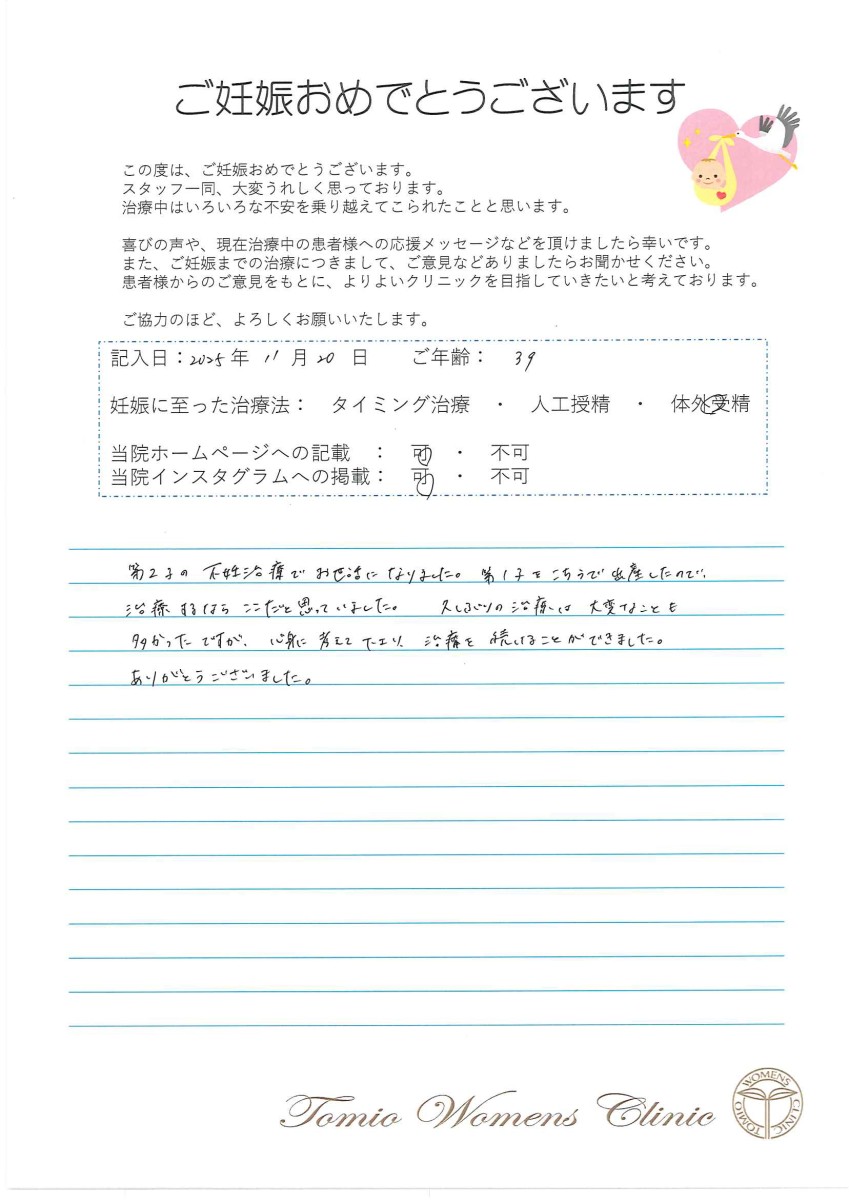 ご妊娠おめでとうございます
この度は、ご妊娠おめでとうございます。
スタッフ一同、大変うれしく思っております。
治療中はいろいろな不安を乗り越えてこられたことと思います。
喜びの声や、現在治療中の患者様への応援メッセージなどを頂けましたら幸いです。
また、ご妊娠までの治療につきまして、ご意見などありましたらお聞かせください。
患者様からのご意見をもとに、よりよいクリニックを目指していきたいと考えております。
ご協力のほど、よろしくお願いいたします。
記入日：2025年 11月 20 日 ご年齢： 39
妊娠に至った治療法： タイミング治療 ・ 人工授精 ・ 体外受精
当院ホームページへの記載 ： 可 ・ 不可
当院インスタグラムへの掲載： 可 ・ 不可
第2子の不妊治療でお世話になりました。第1子をこちらで出産したので、
治療するならここだと思っていました。 久しぶりの治療は大変なことも
多かったですが、心身に考えて下さり、治療を続けることができました。
ありがとうございました。
Tomio Womens Clinic
TOMIO WOMENS CLINIC